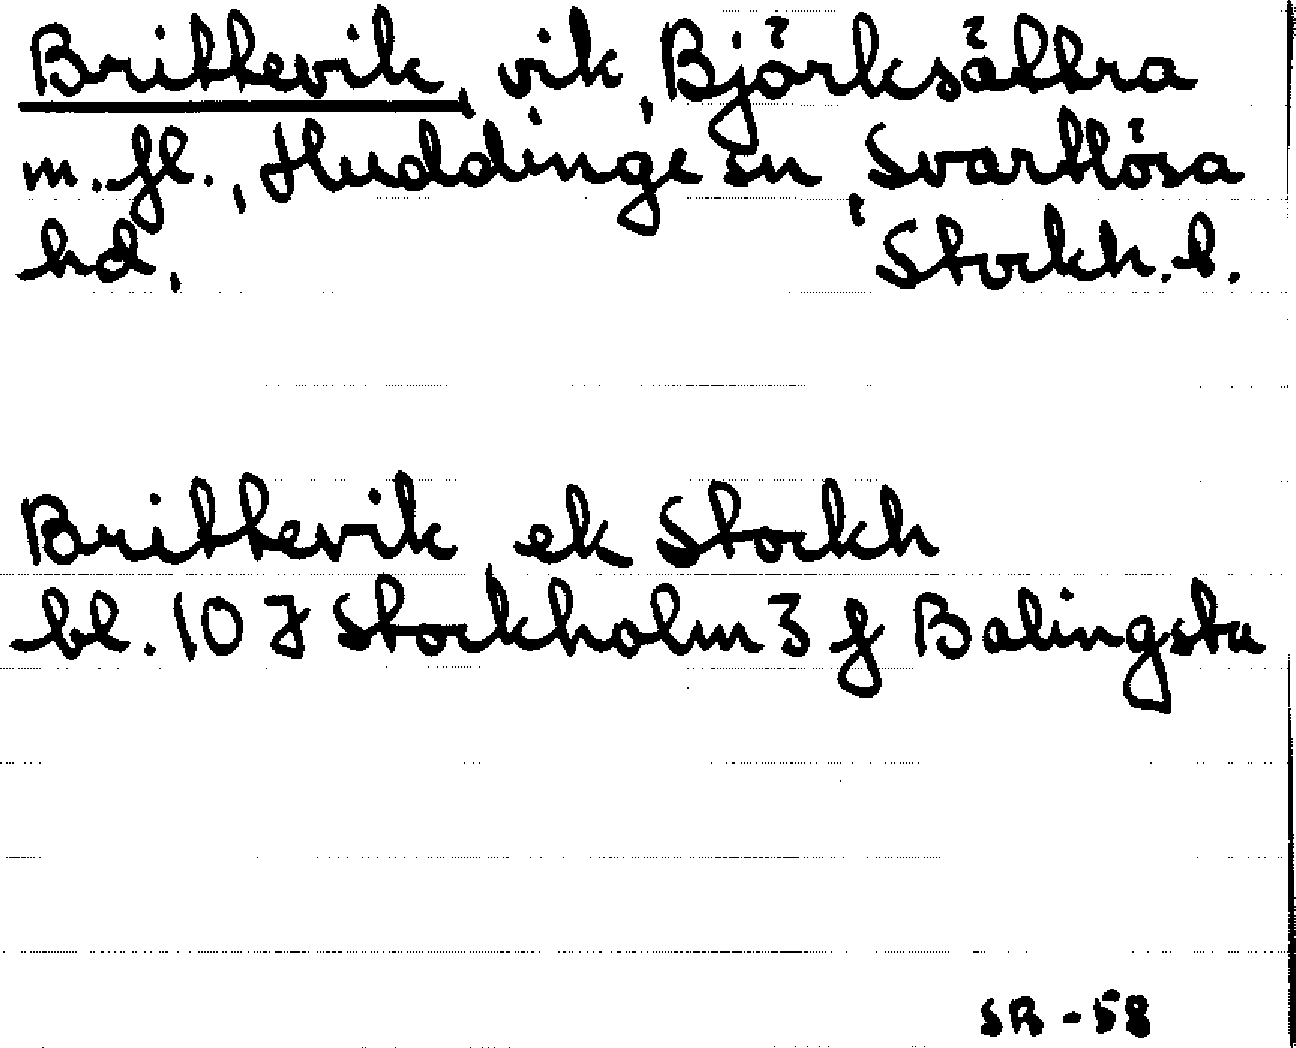 Brittevik, vik, Björksättra
m.fl., Huddinge sn, Svartlösa
hd, Stockh. l.
Brittevik ek Stockh
bl. 10 J Stockholm 3 f Balingsta
SR-58